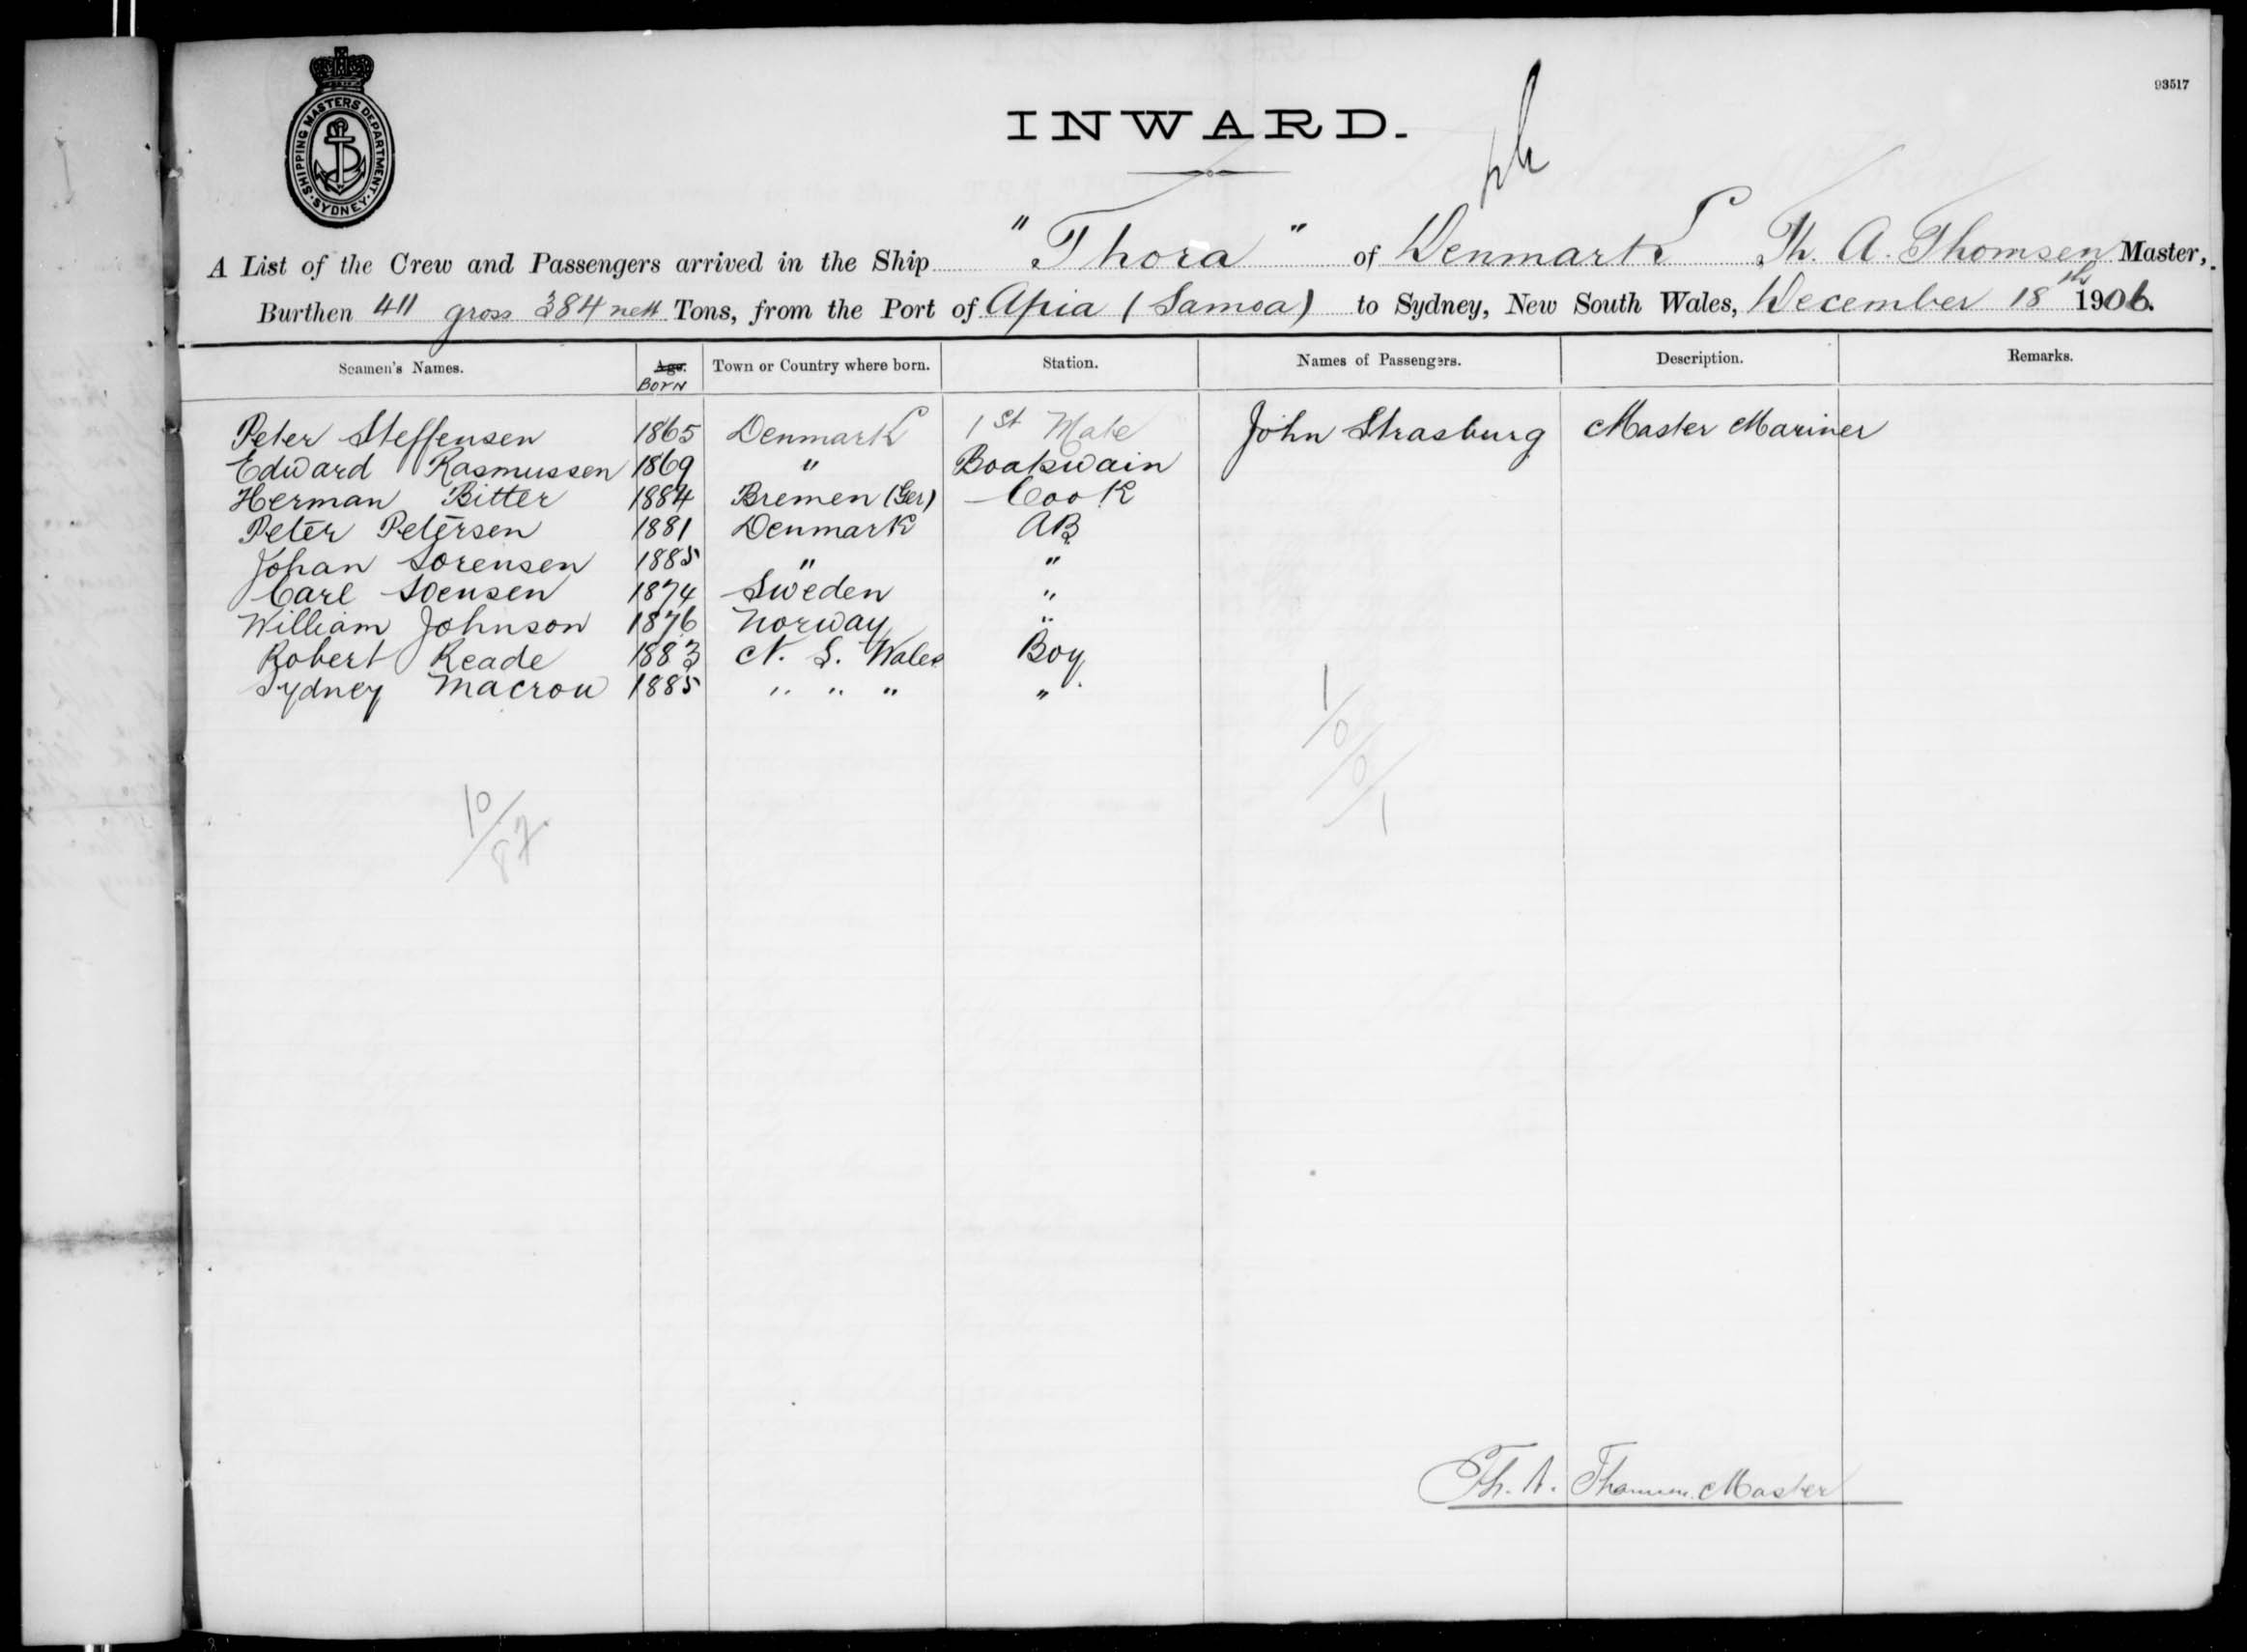 93517
SHIPPING MASTERS DEPARTMENT. SYDNEY.
INWARD.
A List of the Crew and Passengers arrived in the Ship "Thora" of Denmark Th. A. Thomsen Master,
Burthen 411 gross 384 nett Tons, from the Port of Apia (Samoa) to Sydney, New South Wales, December 18th 1906.
Seamen's Names. Age. BORN Town or Country where born. Station. Names of Passengers. Description. Remarks.
Peter Steffensen 1865 Denmark 1st Mate John Strasburg Master Mariner
Edward Rasmussen 1869 " Boatswain
Herman Bitter 1884 Bremen (Ger) Cook
Peter Petersen 1881 Denmark AB
Johan Sorensen 1885 " "
Carl Soensen 1874 Sweden "
William Johnson 1876 Norway "
Robert Reade 1883 N. S. Wales Boy
Sydney Macrou 1885 " " " "
1/0/0/1
10/87.
Th. A. Thomsen Master